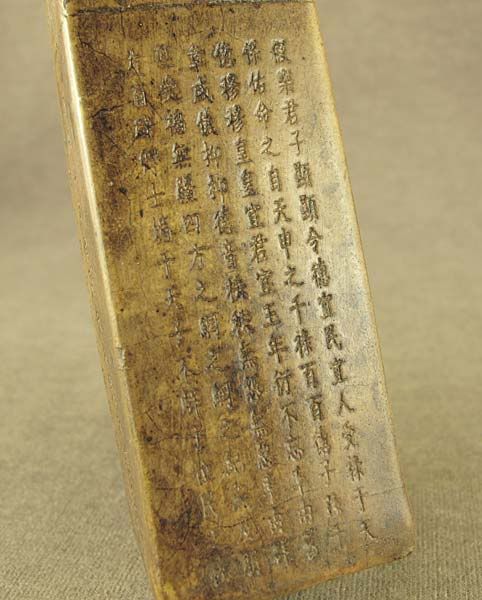 假樂君子顯顯令德宜民宜人受祿于天
保佑命之自天申之千祿百百福子孫千
億穆穆皇皇宜君宜王年衍不忘率由舊
章威儀抑抑德音秩秩無怨無惡率由群
受福無疆四方之綱之綱之紀燕及朋
友百辟卿士媚于天子不解于位民之攸